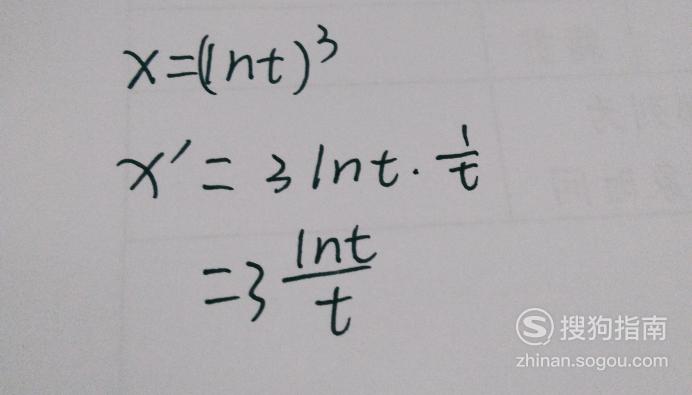 x=(lnt)³
x′= 3lnt·1/t
=3 lnt/t
搜狗指南
zhinan.sogou.com